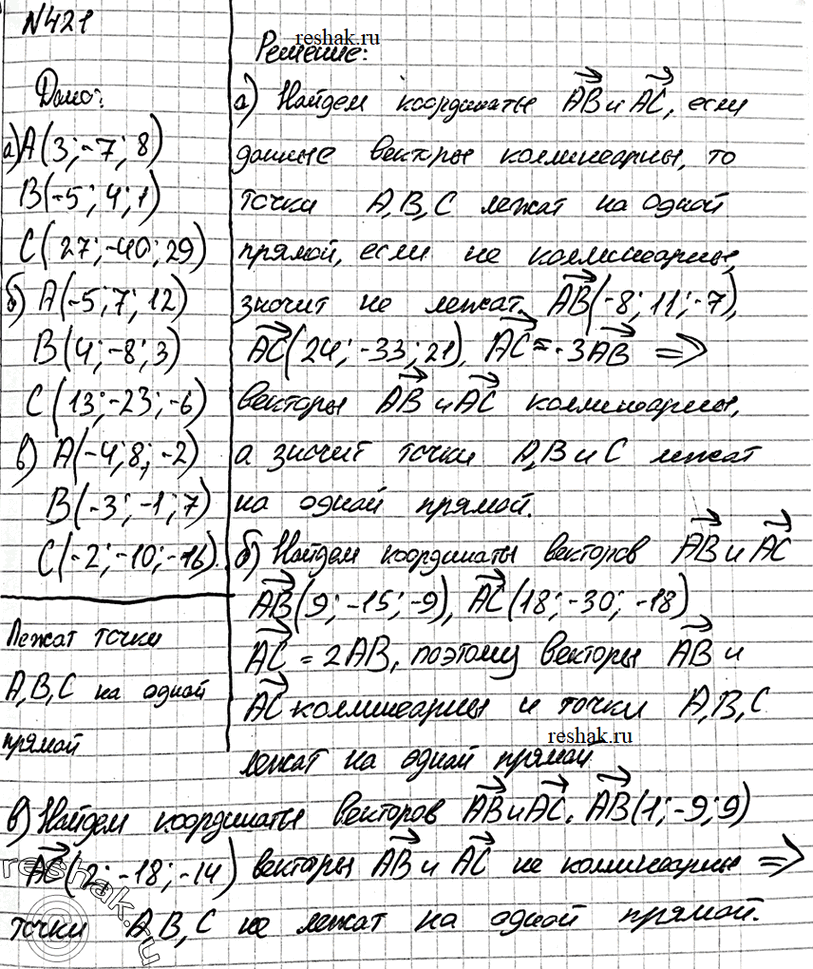 №421
reshak.ru
Решение:
Дано:
а) A(3;-7;8)
B(-5;4;1)
C(27;-40;29)
б) A(-5;7;12)
B(4;-8;3)
C(13;-23;-6)
в) A(-4;8;-2)
B(-3;-1;7)
C(-2;-10;-16).
Лежат точки
A,B,C на одной
прямой
а) Найдем координаты AB и AC, если
данные векторы коллинеарны, то
точки A,B,C лежат на одной
прямой, если не коллинеарны,
значит не лежат. AB(-8;11;-7),
AC(24;-33;21), AC=-3AB ⇒
векторы AB и AC коллинеарны,
а значит точки A,B и C лежат
на одной прямой.
б) Найдем координаты векторов AB и AC
AB(9;-15;-9), AC(18;-30;-18)
AC=2AB, поэтому векторы AB и
AC коллинеарны и точки A,B,C
reshak.ru
лежат на одной прямой
в) Найдем координаты векторов AB и AC. AB(1;-9;9)
AC(2;-18;-14) векторы AB и AC не коллинеарны ⇒
точки A,B,C не лежат на одной прямой.
reshak.ru